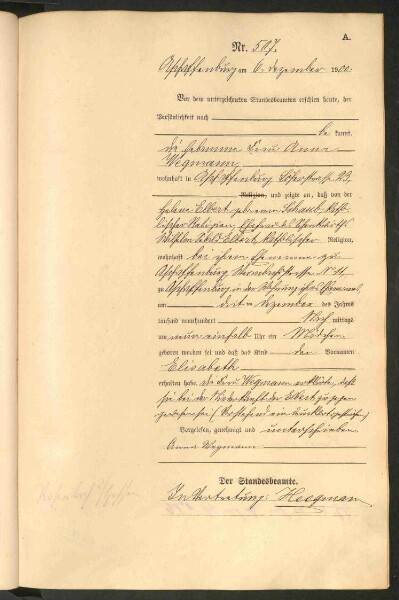 A.
Nr. 507.
Aschaffenburg am 6. Dezember 1900.
Vor dem unterzeichneten Standesbeamten erschien heute, der
Persönlichkeit nach
be kannt,
die Hebamme Frau Anna
Wegmann,
wohnhaft in Aschaffenburg 23,
Religion, und zeigte an, daß von der
Helena Elbert geborenen Schaub, katho-
lischer Religion, Ehefrau des
Wilhelm Elbert, katholischer Religion,
wohnhaft bei ihrem Ehemanne zu
Aschaffenburg N 11
zu Aschaffenburg in der Wohnung ihres Ehemannes,
am dritten Dezember des Jahres
tausend neunhundert Nach mittags
um neun einhalb Uhr ein Mädchen
geboren worden sei und daß das Kind den Vornamen
Elisabeth
erhalten habe. die Frau Wegmann erklärte, daß
sie bei der Niederkunft der Elbert zugegen
gewesen sei. (Vorstehend ein Druckwort gestrichen)
Vorgelesen, genehmigt und unterschrieben
Anna Wegmann
Der Standesbeamte.
In Vertretung: Heegman